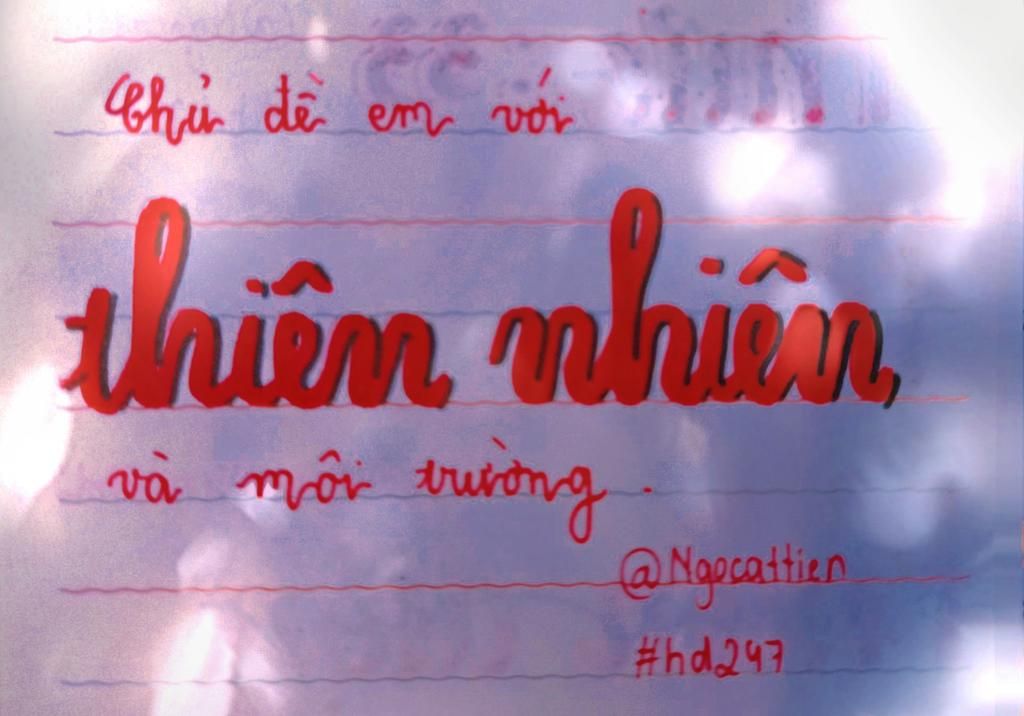 Chủ đề em với
thiên nhiên
và môi trường.
@Ngocattien
#hd247